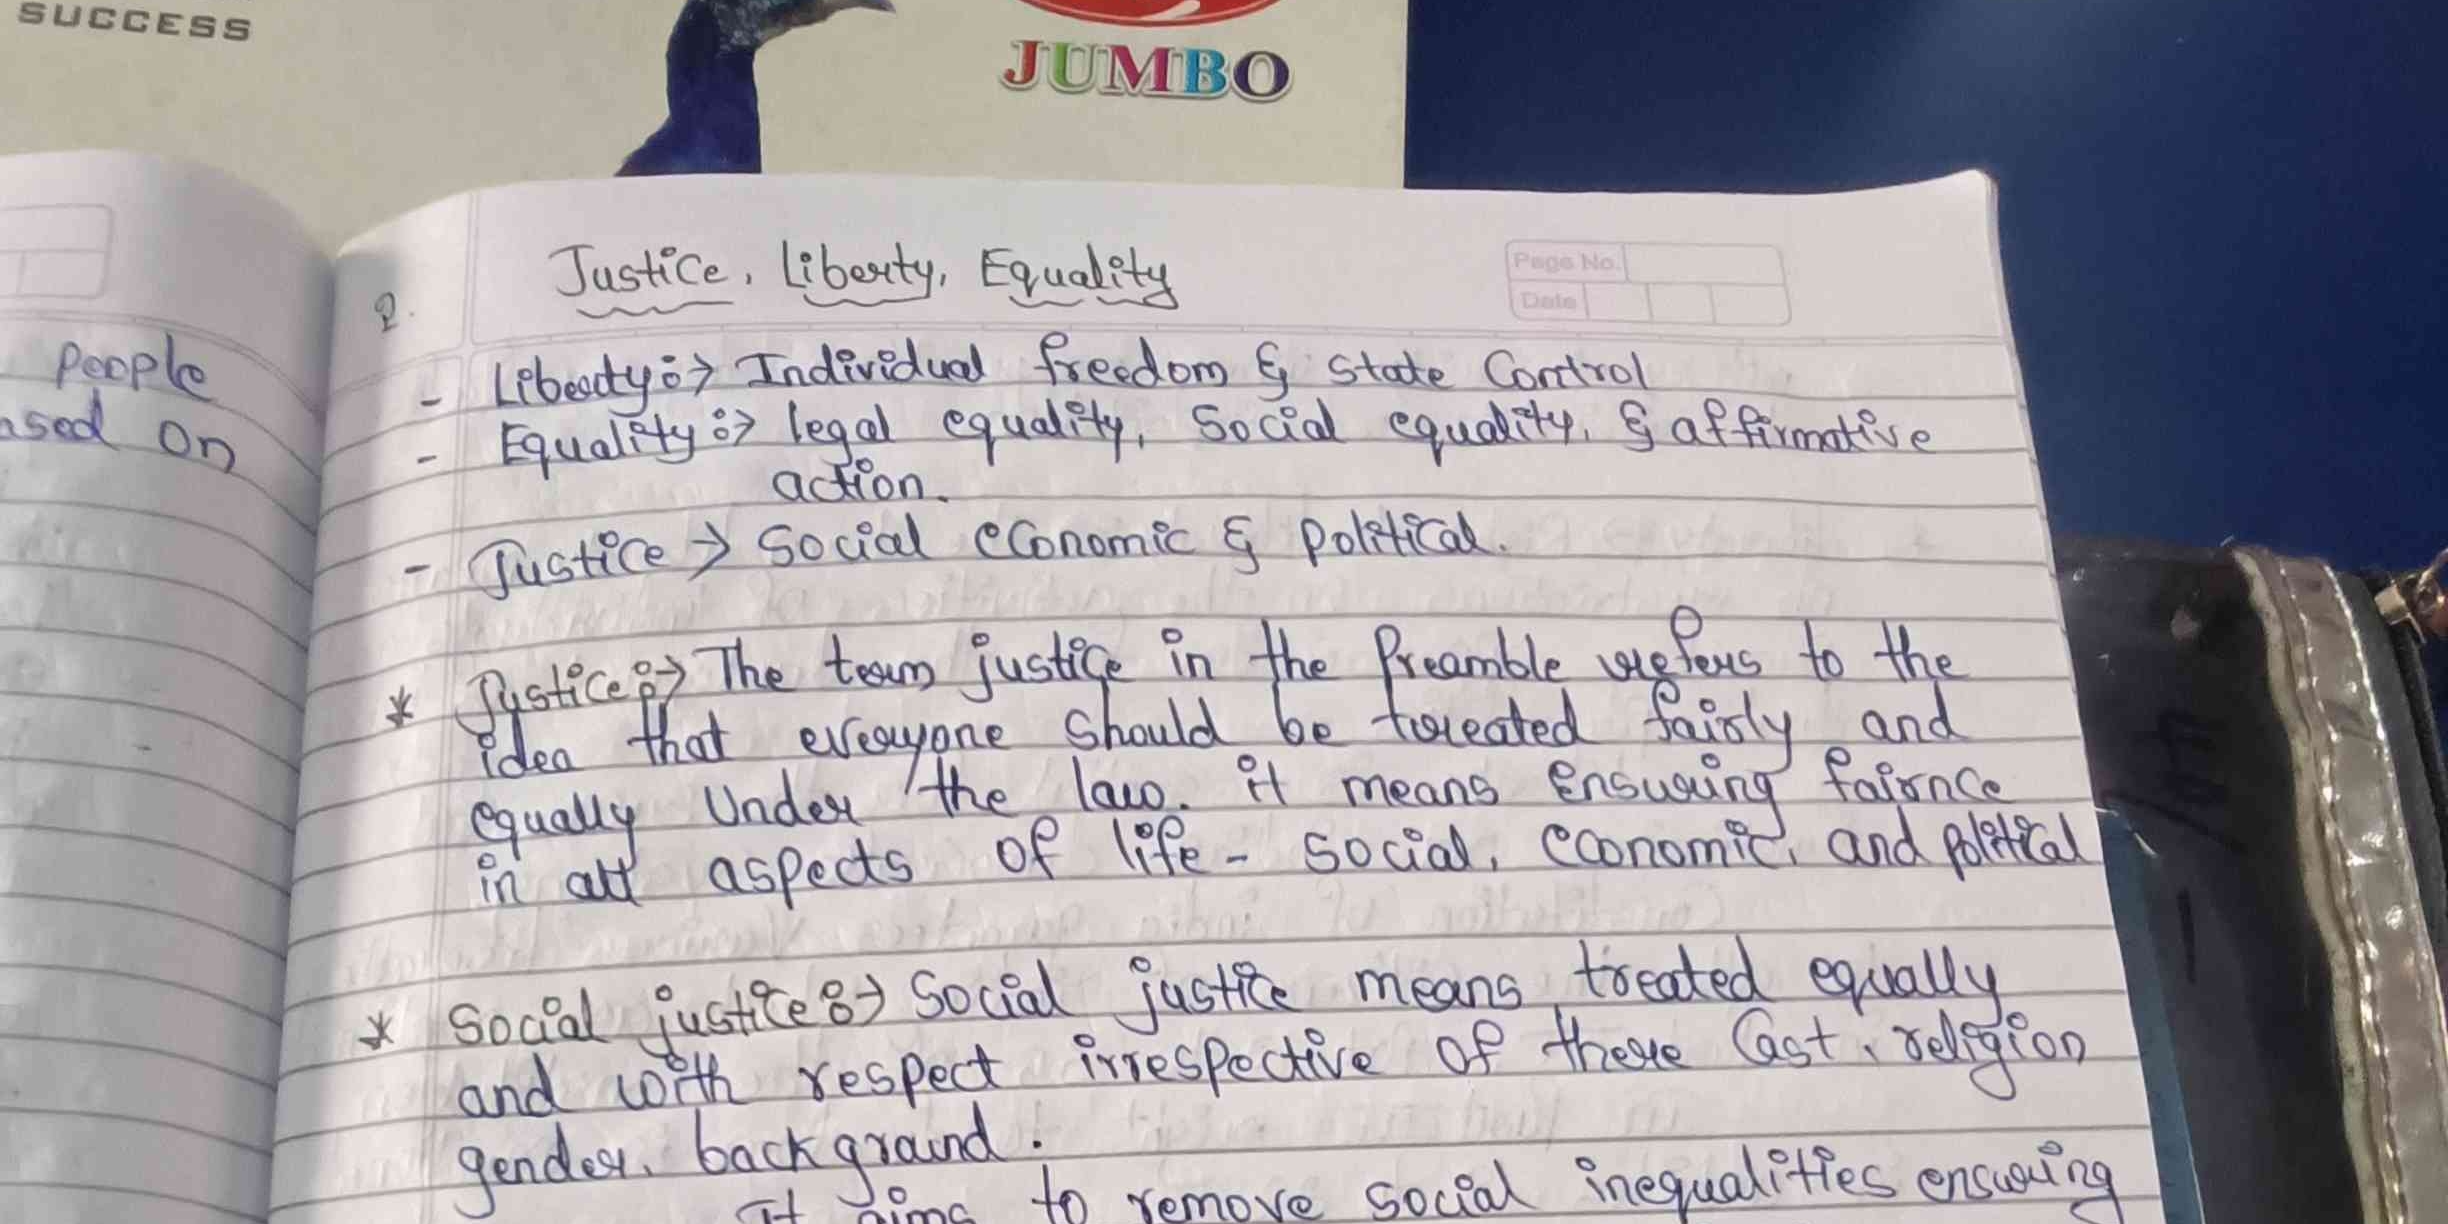 SUCCESS
JUMBO
People
ased on
2.
Justice, Liberty, Equality
Page No.
Date
- Liberty :→ Individual freedom & State Control
- Equality :→ legal equality, Social equality, & affirmative
action.
- Justice → Social economic & Political.
* Justice :→ The term justice in the Preamble refers to the
idea that everyone should be treated fairly and
equally Under the law. it means Ensuring fairnce
in all aspects of life - social, economic, and political
* Social justice :→ Social justice means treated equally
and with respect irrespective of there Cast, religion
gender, background.
It aims to remove social inequalities ensuring